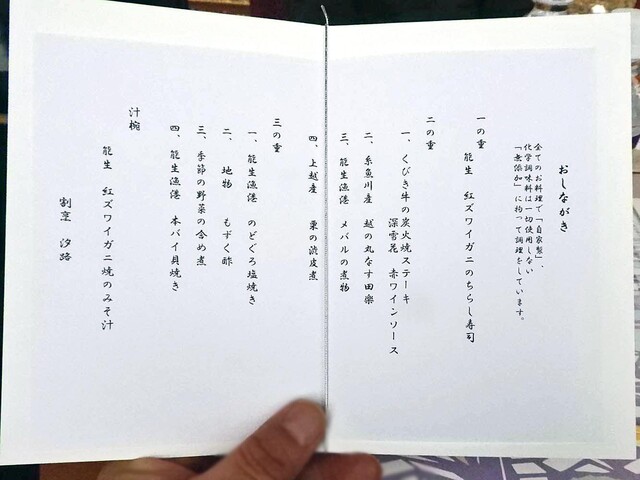 おしながき
全てのお料理で「自家製」、
化学調味料は一切使用しない
「無添加」に拘って調理をしています。
一の重
能生 紅ズワイガニのちらし寿司
二の重
一、くびき牛の炭火焼ステーキ
深雪花 赤ワインソース
二、糸魚川産 越の丸なす田楽
三、能生漁港 メバルの煮物
四、上越産 栗の渋皮煮
三の重
一、能生漁港 のどぐろ塩焼き
二、地物 もずく酢
三、季節の野菜の含め煮
四、能生漁港 本バイ貝焼き
汁椀
能生 紅ズワイガニ焼のみそ汁
割烹 汐路